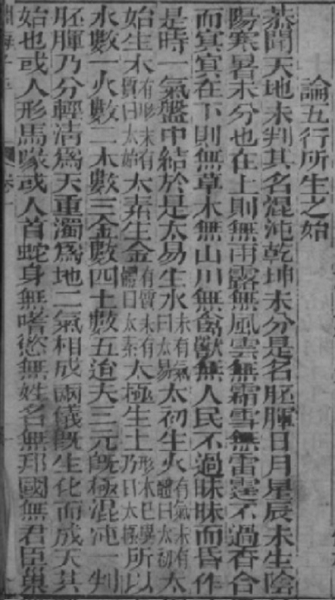 論五行所生之始
蓋聞天地未判其名混沌乾坤未分是名胚腪日月星辰未生陰
陽寒暑未分也在上則無雨露無風雲無霜雪無雷霆不過杳合
而冥冥在下則無草木無山川無禽獸無人民不過昧昧而昏作
是時一氣盤中結於是太易生水未有氣曰太易太初生火有氣未有體曰太初太
始生木有形未有質曰太始太素生金有質未有體曰太素太極生土形體已具乃曰太極所以
水數一火數二木數三金數四土數五迨夫三元既極混沌一判
胚腪乃分輕清為天重濁為地二氣相成兩儀既生化而成天其
始也或人形馬喙或人首蛇身無嗜慾無姓名無邦國無君臣巢
淵海子平